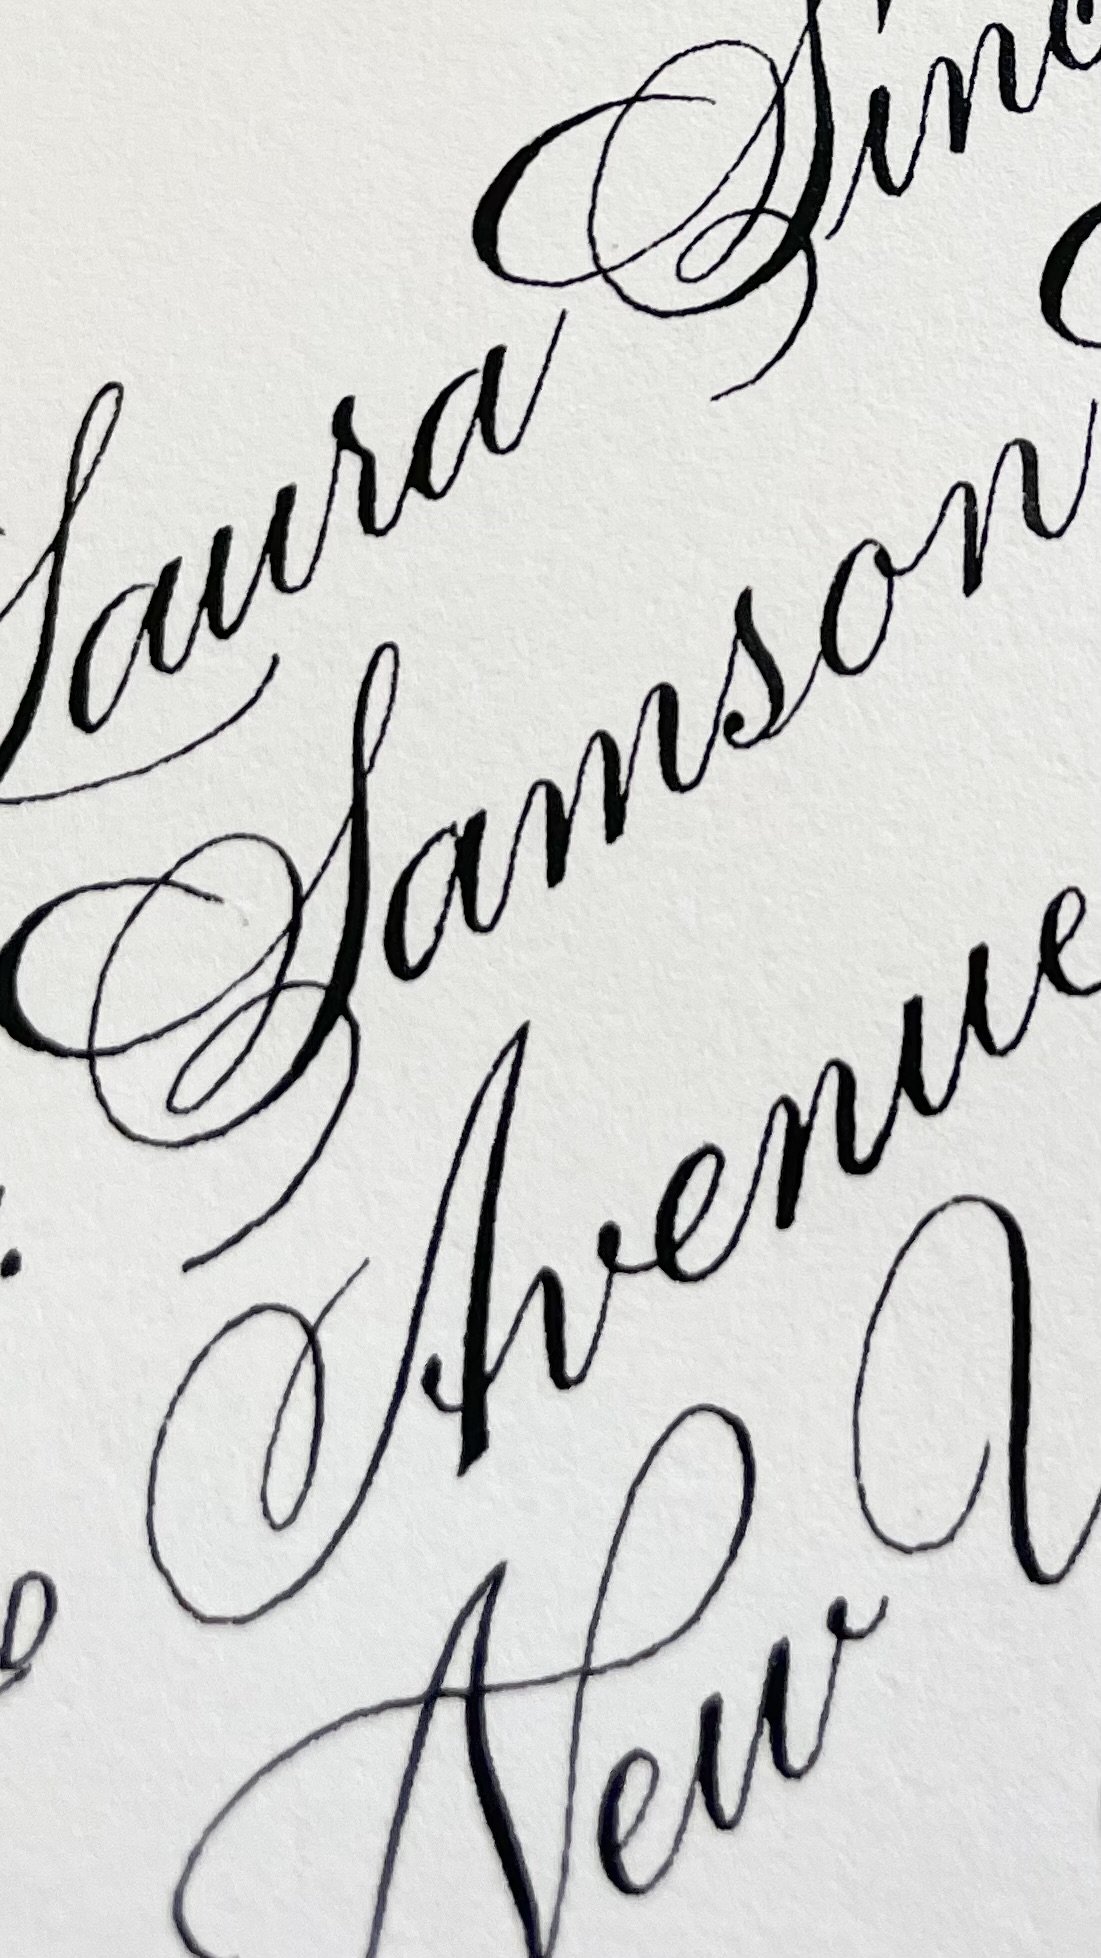 Laura Sin
Samson
Avenue
New